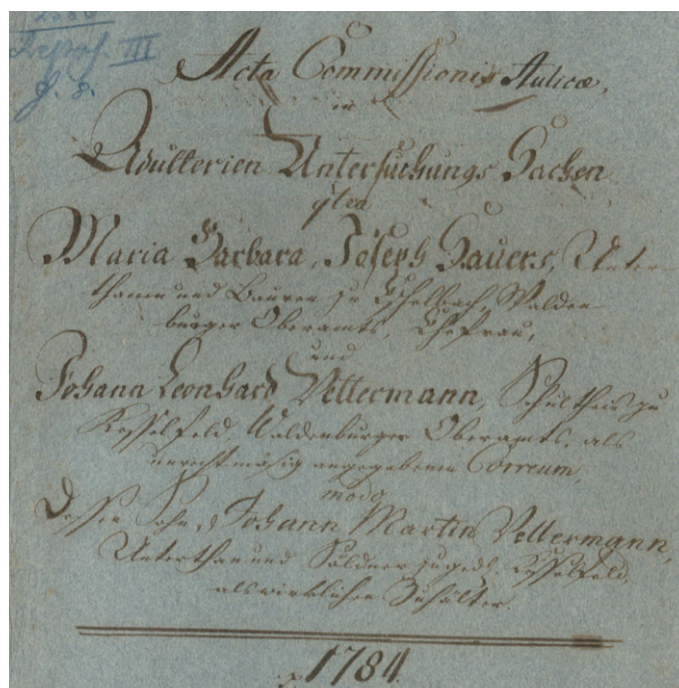 Repos. III
J. 8.
Acta Commissionis Aulicæ,
in
Adulterien Untersuchungs Sachen
ctra
Maria Barbara, Joseph Bauers, Unter-
thanen und Bauren zu Eschelbach, Walden-
burger Oberamts, Ehefrau,
und
Johann Leonhard Vettermann, Schultheis zu
Kesselfeld, Waldenburger Oberamts, als
unrechtmäsig angegebenen Correum,
modo
Dessen Sohn, Johann Martin Vettermann,
Unterthan und Söldner zu gedl. Kesselfeld,
als wirklichen Zuhälter.
1784.